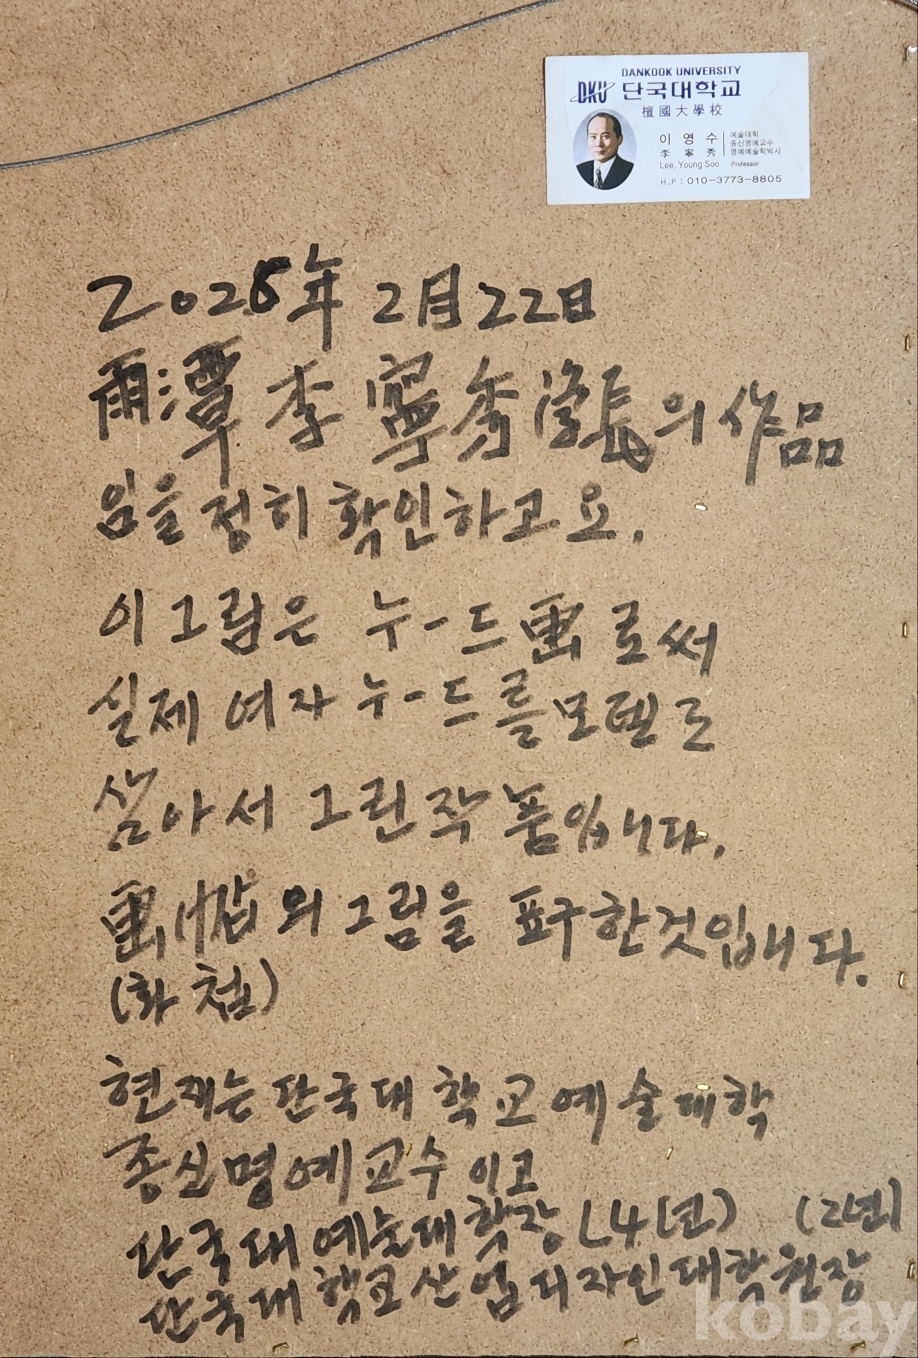 DANKOOK UNIVERSITY
DKU 단국대학교
檀國大學校
이영수 예술대학
종신명예교수
李寧秀 명예예술학박사
Lee, Young Soo Professor
H.P : 010-3773-8805
2025年 2月22日
雨潭 李寧秀 의 作品
임을 정히 확인하고요.
이그림은 누-드畫로써
실제 여자 누-드를모델로
삼아서 그린작품입니다.
畫帖의그림을 표구한것입니다.
(화첩)
현재는 단국대학교예술대학
종신명예교수이고
단국대예술대학장(4년) (2년)
단국대학교산업디자인대학원장
kobay